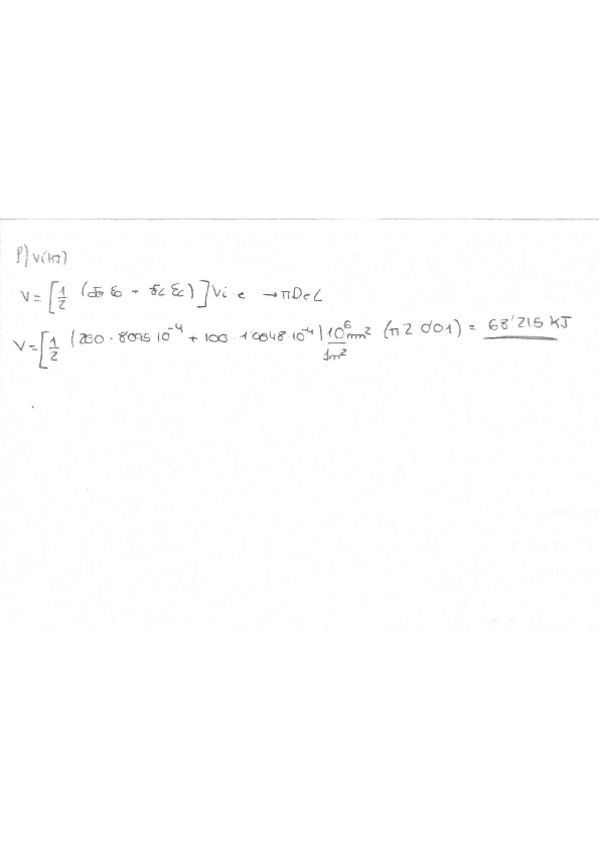 f) V(kJ)
V = [1/2 (σθ εθ + σL εL)] Vi e → π D e L
V = [1/2 (200 · 8'095 10⁻⁴ + 100 · 1'0048 · 10⁻⁴) 10⁶ mm²/1m² (π 2 0'01) = 68'215 KJ